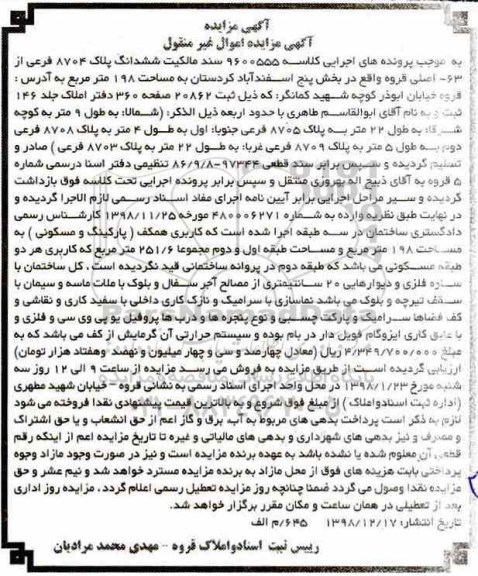 آگهی مزایده
آگهی مزایده اموال غیر منقول
به موجب پرونده های اجرایی کلاسه ۹۶۰۰۵۵۵ سند مالکیت ششدانگ پلاک ۸۷۰۴ فرعی از
۶۳- اصلی قروه واقع در بخش پنج اسفندآباد کردستان به مساحت ۱۹۸ متر مربع به آدرس :
قروه خیابان ابوذر کوچه شهید کمانگر: که ذیل ثبت ۲۰۸۶۲ صفحه ۳۶۰ دفتر املاک جلد ۱۴۶
ثبت و به نام آقای ابوالقاسم طاهری با حدود اربعه ذیل الذکر: (شمالا: به طول ۹ متر به کوچه
شرقا: به طول ۲۲ متر به پلاک ۸۷۰۵ فرعی جنوبا: اول به طول ۴ متر به پلاک ۸۷۰۸ فرعی
دوم به طول ۵ متر به پلاک ۸۷۰۹ فرعی غربا: به طول ۲۲ متر به پلاک ۸۷۰۳ فرعی ) صادر و
تسلیم گردیده و سپس برابر سند قطعی ۹۷۳۴۴-۸۶/۹/۸ تنظیمی دفتر اسنا درسمی شماره
۵ قروه به آقای ذبیح اله بهروزی منتقل و سپس برابر پرونده اجرایی تحت کلاسه فوق بازداشت
گردیده و سیر مراحل اجرایی برابر آیین نامه اجرای مفاد اسناد رسمی لازم الاجرا گردیده و
در نهایت طبق نظریه وارده به شماره ۴۸۰۰۰۶۲۷۱ مورخه ۱۳۹۸/۱۱/۲۵ کارشناس رسمی
دادگستری ساختمان در سه طبقه اجرا شده است که کاربری همکف ( پارکینگ و مسکونی ) به
مساحت ۱۹۸ متر مربع و مساحت طبقه اول و دوم مجموعا ۲۵۱/۶ متر مربع که کاربری هر دو
طبقه مسکونی می باشد که طبقه دوم در پروانه ساختمانی قید نگردیده است . کل ساختمان با
سازه فلزی و دیوارهایی ۲۰ سانتیمتری از مصالح آجر سفال و بلوک با ملات ماسه و سیمان با
سقف تیرچه و بلوک می باشد نماسازی با سرامیک و نازک کاری داخلی با سفید کاری و نقاشی و
کف فضاها سرامیک و پارکت چسبی و نوع پنجره ها و درب ها پروفیل یو پی وی سی و فلزی و
با عایق کاری ایزوگام فویل دار در بام بوده و سیستم حرارتی آن گرمایش از کف می باشد که به
مبلغ ۴/۳۴۹/۷۰۰/۰۰۰ ریال (معادل چهارصد و سی و چهار میلیون و نهصد وهفتاد هزار تومان)
ارزیابی گردیده است از طریق مزایده به فروش می رسد مزایده از ساعت ۹ الی ۱۲ روز سه
شنبه مورخ ۱۳۹۹/۱/۲۳ در محل واحد اجرای اسناد رسمی به نشانی قروه – خیابان شهید مطهری
(اداره ثبت اسنادواملاک ) از مبلغ فوق شروع و به بالاترین قیمت پیشنهادی نقدا فروخته می شود
لازم به ذکر است پرداخت بدهی های مربوط به آب، برق و گاز اعم از حق انشعاب و یا حق اشتراک
و مصرف و نیز بدهی های شهرداری و بدهی های مالیاتی و غیره تا تاریخ مزایده اعم از اینکه رقم
قطعی آن معلوم شده یا نشده باشد به عهده برنده مزایده است و نیز در صورت وجود مازاد وجوه
پرداختی بابت هزینه های فوق از محل مازاد به برنده مزایده مسترد خواهد شد و نیم عشر و حق
مزایده نقدا وصول می گردد ضمنا چنانچه روز مزایده تعطیل رسمی اعلام گردد ، مزایده روز اداری
بعد از تعطیلی در همان ساعت و مکان مقرر برگزار خواهد شد.
تاریخ انتشار: ۱۳۹۸/۱۲/۱۷ ۶۴۵/م الف
رییس ثبت اسنادواملاک قروه – مهدی محمد مرادیان